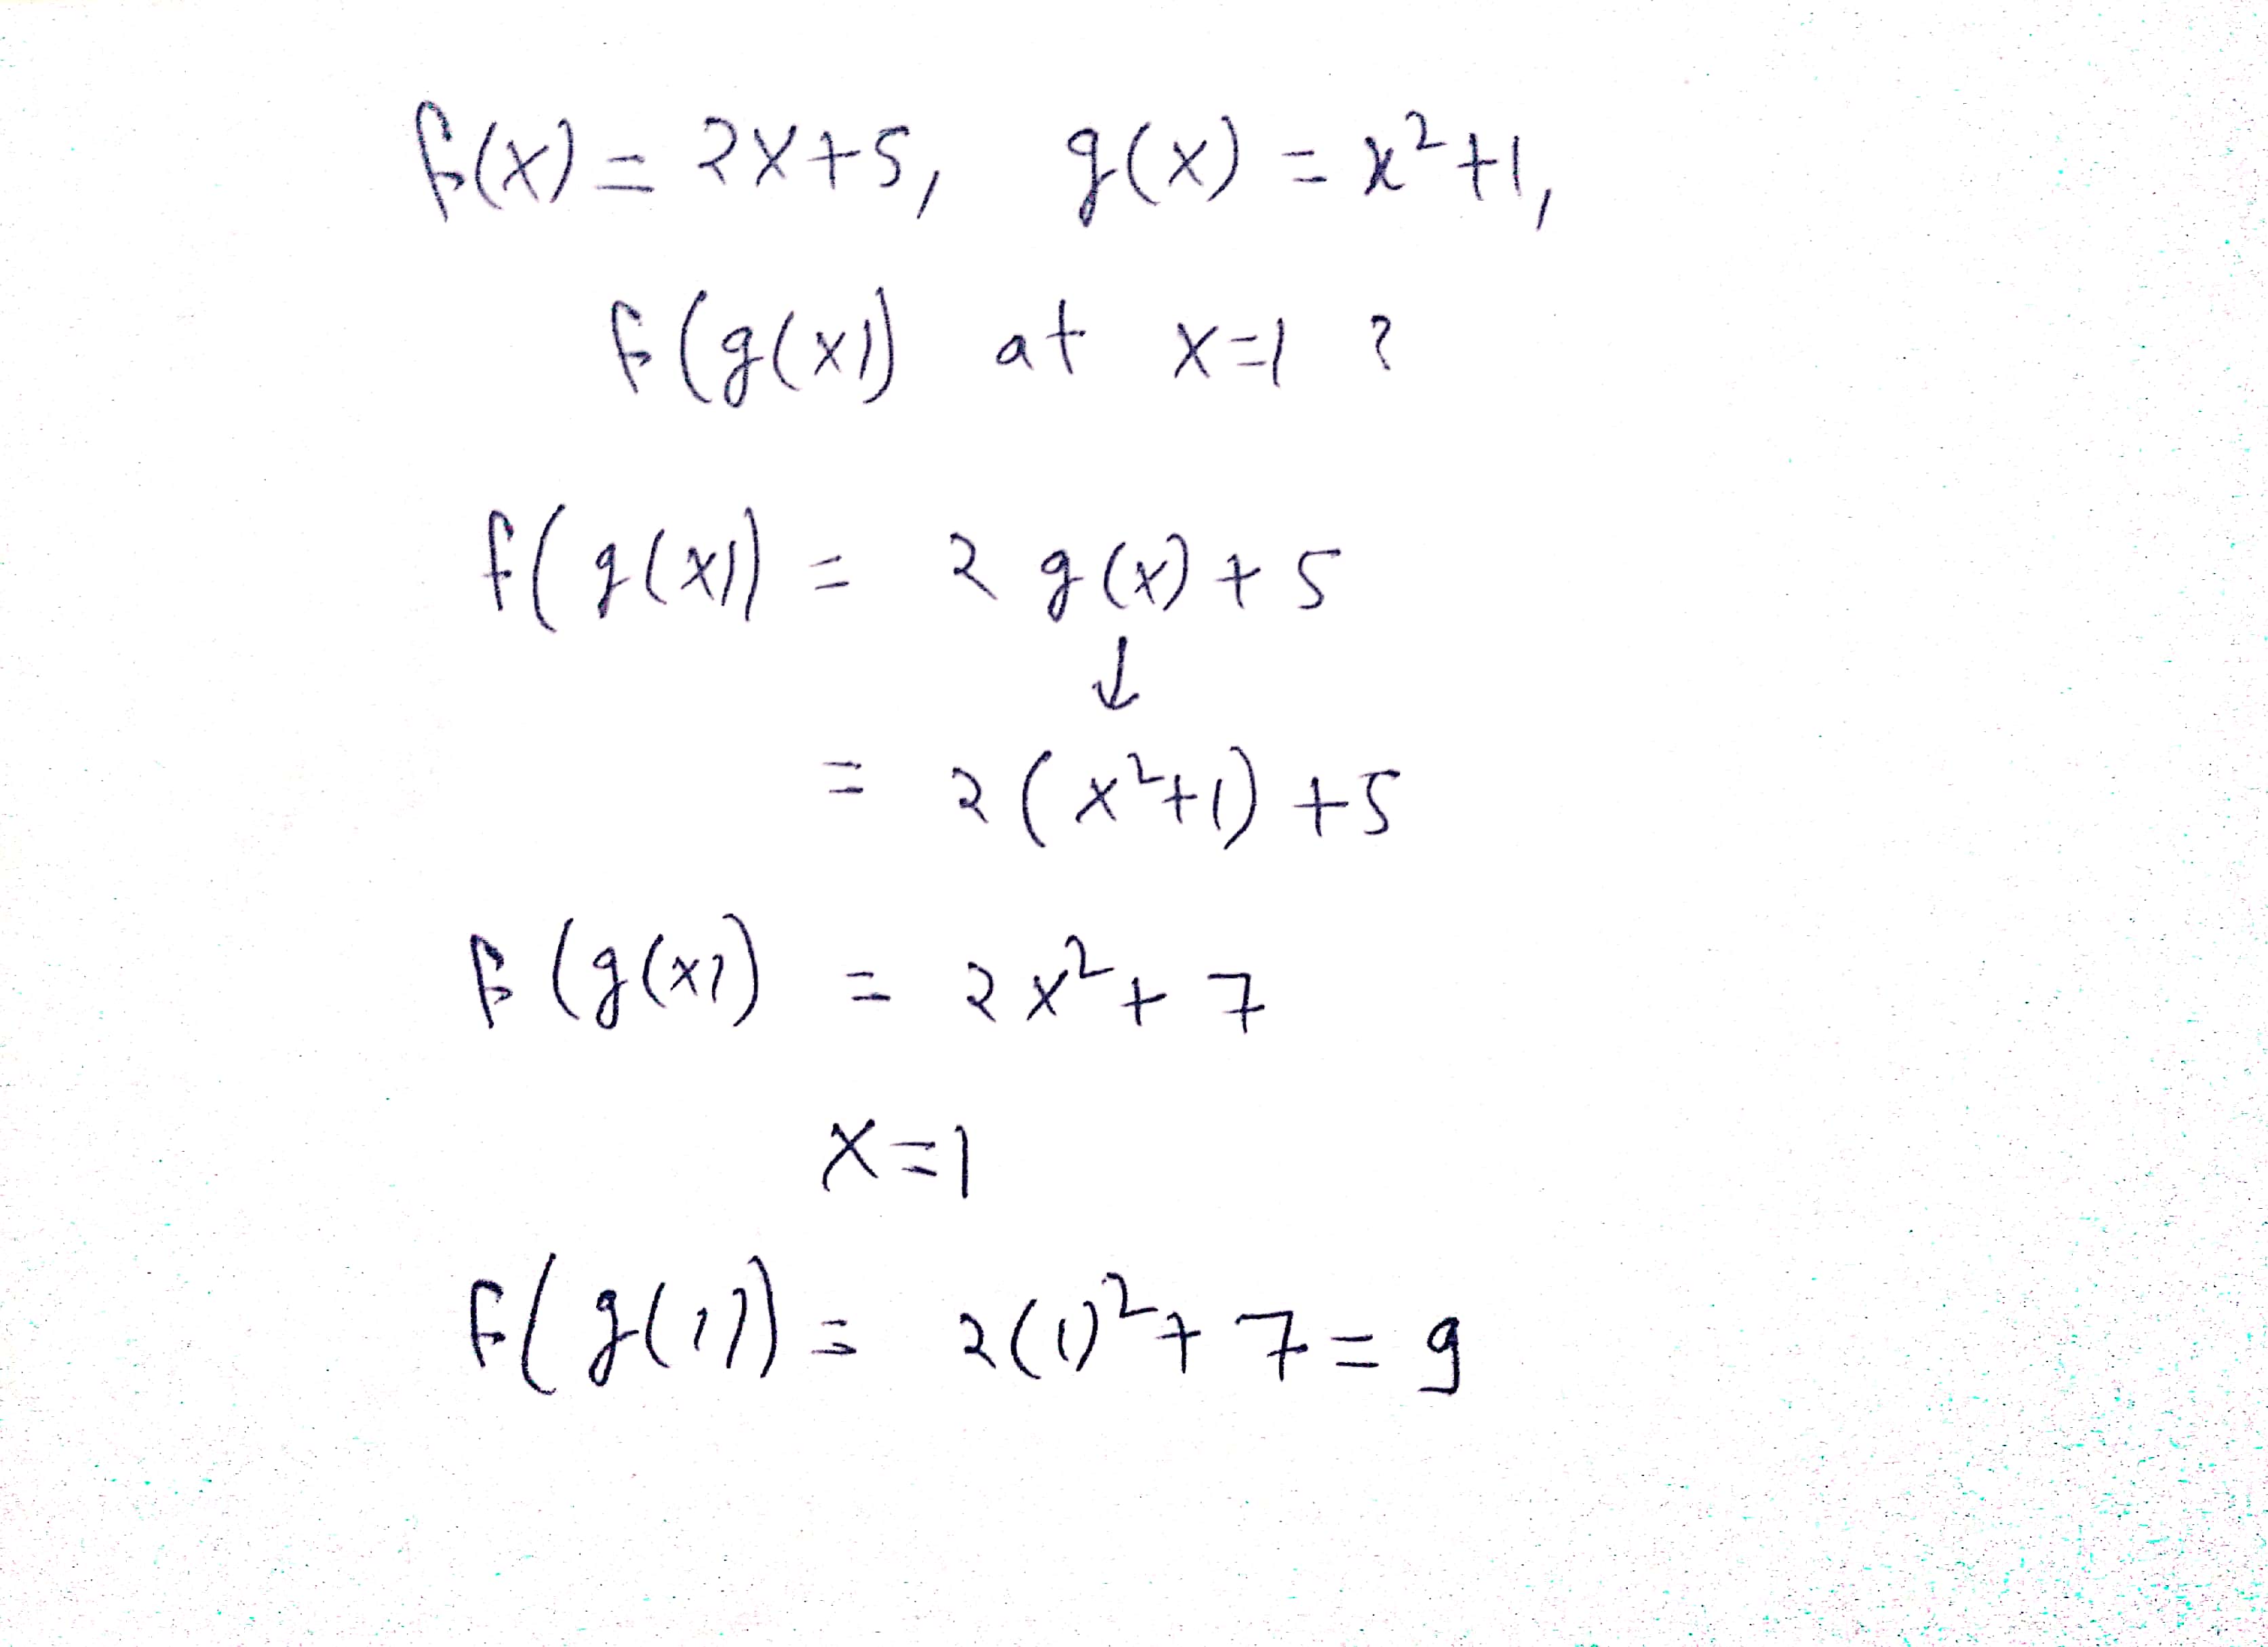 f(x) = 2x+5, g(x) = x²+1,
f(g(x)) at x=1 ?
f(g(x)) = 2 g(x) + 5
↓
= 2(x²+1) +5
f(g(x)) = 2x² + 7
x=1
f(g(1)) = 2(1)² + 7 = 9